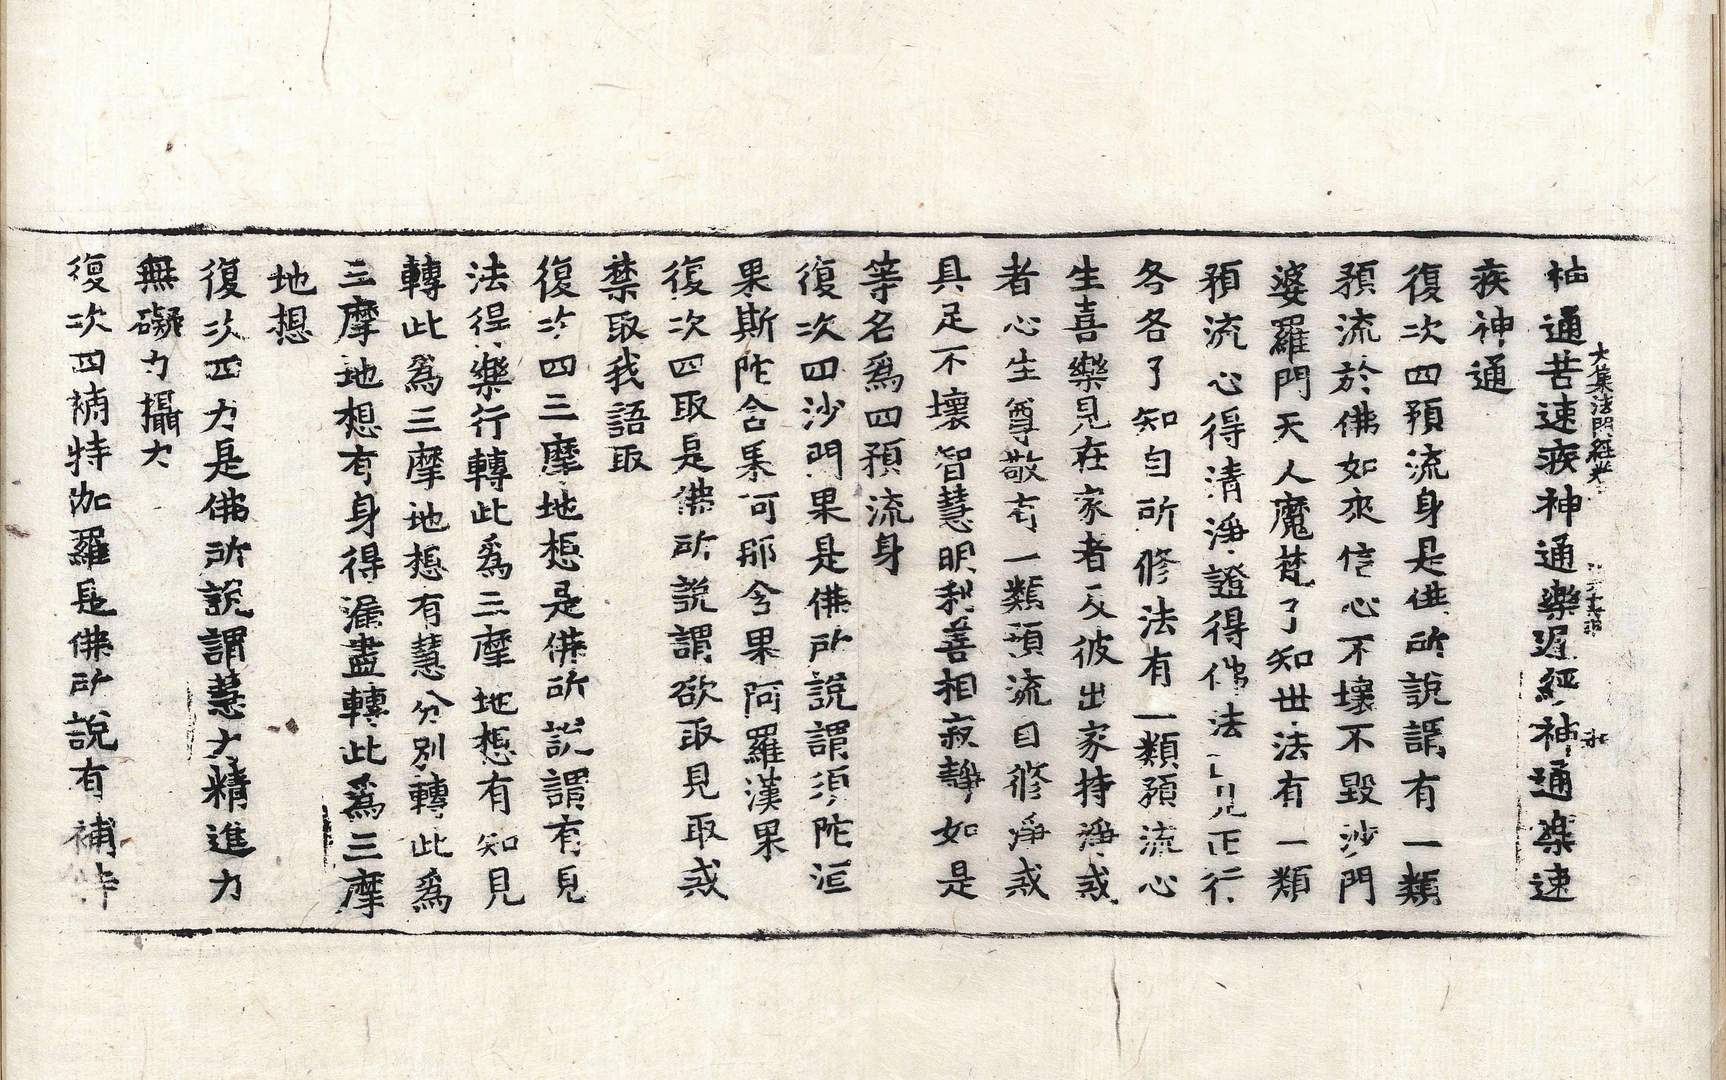 神通苦速疾神通樂遲經神通樂速
大集法門經
疾神通
復次四預流身是佛所說謂有一類
預流於佛如來信心不壞不毀沙門
婆羅門天人魔梵了知世法有一類
預流心得清淨證得佛法見正行
各各了知自所修法有一類預流心
生喜樂見在家者及彼出家持淨戒
者心生尊敬有一類預流自修淨戒
具足不壞智慧明利善相寂靜如是
等名爲四預流身
復次四沙門果是佛所說謂須陀洹
果斯陀含果阿那含果阿羅漢果
復次四取是佛所說謂欲取見取戒
禁取我語取
復次四三摩地想是佛所說謂有見
法得樂行轉此爲三摩地想有知見
轉此爲三摩地想有慧分別轉此爲
三摩地想有身得漏盡轉此爲三摩
地想
復次四力是佛所說謂慧力精進力
無礙力攝力
復次四補特伽羅是佛所說有補特